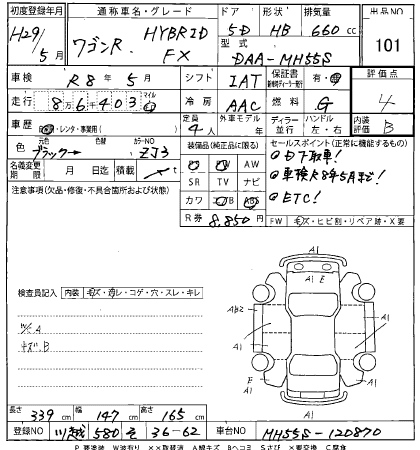 初度登録年月 通称車名・グレード ドア 形状 排気量 出品NO
H29/5月 ワゴンR HYBRID FX 5D HB 660cc
型式 DAA-MH55S 101
車検 R8年5月 シフト IAT 保証書 有・無 評価点
走行 86403 マイル 冷房 AAC 燃料 G 4
車歴 自家・レンタ・事業用( ) 定員 4人 外車モデル 年 ディーラー 並行 ハンドル 左・右 内装評価 B
色 元色 ブラック 色替 カラーNO ZJ3
装備品(純正品に限る) セールスポイント(正常に機能するもの)
名義変更期限 月 日迄 積載
PS PW AW
SR TV ナビ
カワ エアB ABS
R券 8,850円
●下取車!
●車検R8年5月まで!
●ETC!
FW キズ・ヒビ割・リペア跡・X要
注意事項(欠品・修復・不具合箇所および状態)
検査員記入 内装 キズ・汚レ・コゲ・穴・スレ・キレ
キズB
A1
A1 E
AB2 A1
A1 A1
E
A1
A1
長さ 339cm 幅 147cm 高さ 165cm
登録NO 川越 580 そ 36-62 車台NO MH55S-120870
P要塗装 W波有り ××取替済 A線キズ Bヘコミ Sさび ×要交換 C腐食